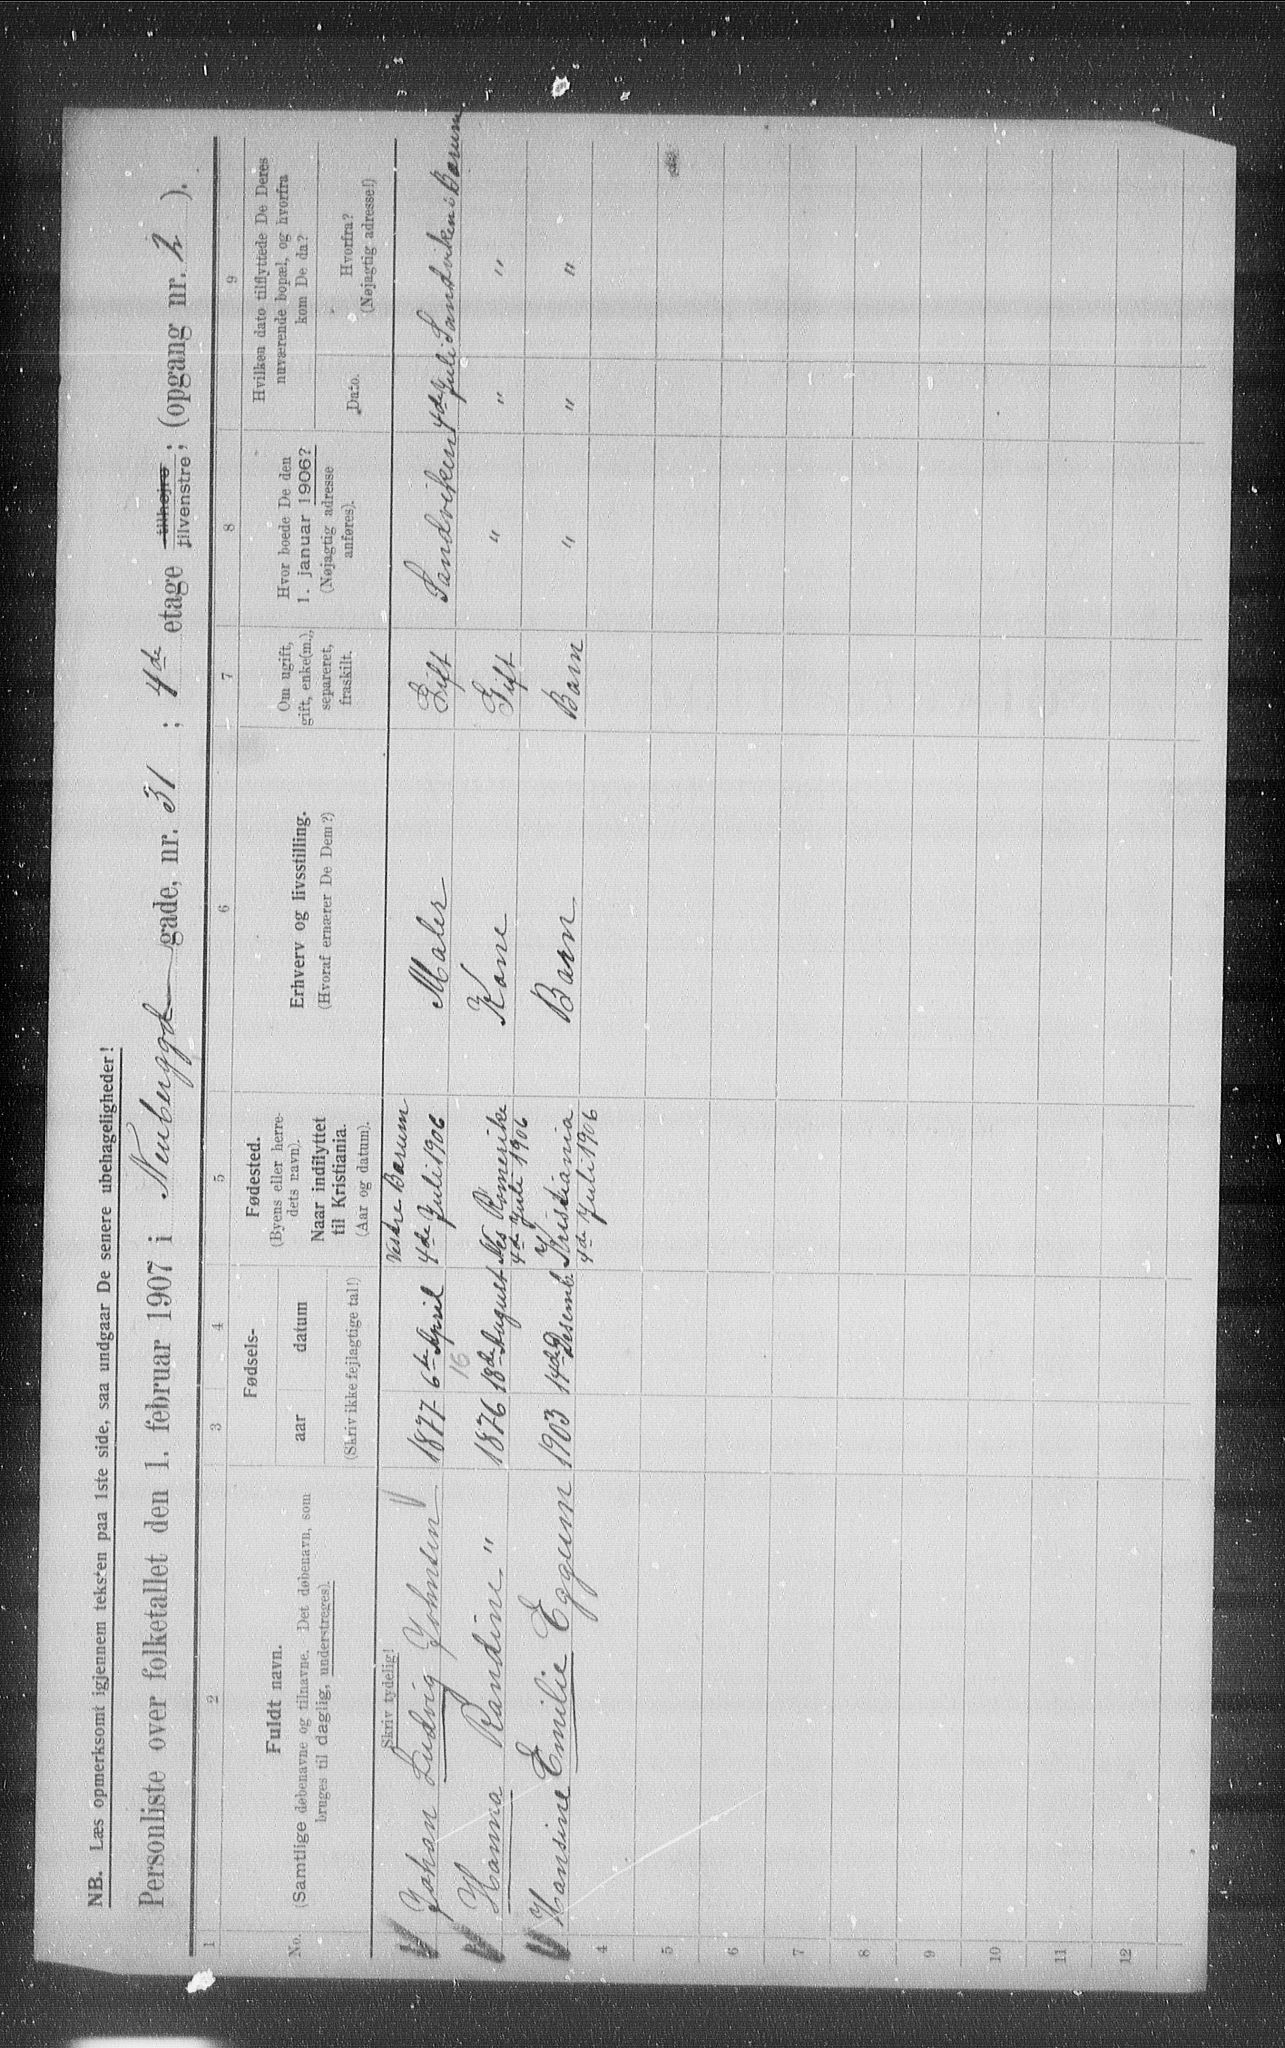 NB. Læs opmerksomt igjennem teksten paa 1ste side, saa undgaar De senere ubehageligheder!
Personliste over folketallet den 1. februar 1907 i Neuberggd gade, nr. 31 ; 4de etage tilhøjre tilvenstre ; (opgang nr. 2 ).
1 2 3 4 5 6 7 8 9
No.
Fuldt navn.
(Samtlige døbenavne og tilnavne. Det døbenavn, som
bruges til daglig, understreges).
Fødsels-
aar datum
(Skriv ikke fejlagtige tal!)
Fødested.
(Byens eller herre-
dets navn).
Naar indflyttet
til Kristiania.
(Aar og datum).
Erhverv og livsstilling.
(Hvoraf ernærer De Dem?)
Om ugift,
gift, enke(m.),
separeret,
fraskilt.
Hvor boede De den
1. januar 1906?
(Nøjagtig adresse
anføres).
Hvilken dato tilflyttede De Deres
nuværende bopæl, og hvorfra
kom De da?
Dato.
Hvorfra?
(Nøjagtig adresse!)
Skriv tydelig!
Johan Ludvig Johnsen 1877 6te April Vestre Bærum 4de Juli 1906 Maler Gift Sandviken 4de Juli Sandviken i Bærum
16
Hanna Randine " 1876 18de August Nes Romerike 4de Juli 1906 Kone Gift " " "
Hansine Emilie Eggum 1903 14de Desemb Kristiania 4de Juli 1906 Barn Barn " " "
4
5
6
7
8
9
10
11
12